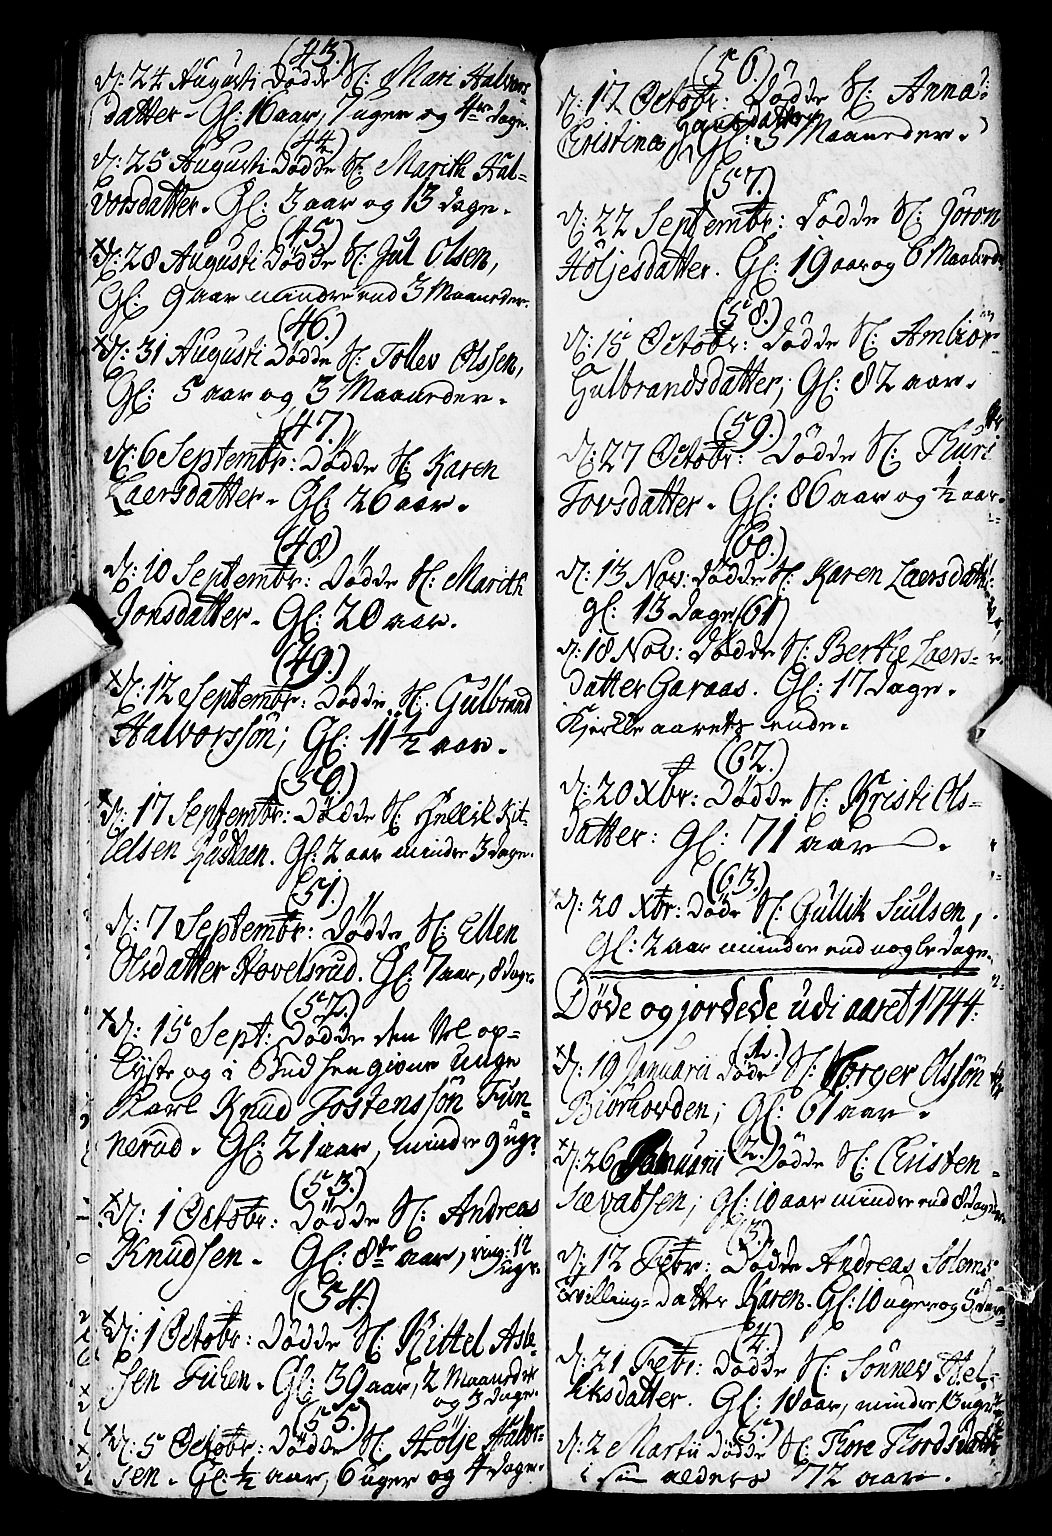 (43.)
D: 24 Augusti Dødde N: Mari Halvors-
datter. Gl: 16 aar, 7 uger og 4re dage.
(44)
D: 25 Augusti Dødde N: Marith Hal-
vorsdatter. Gl: 3 aar og 13 dage.
(45)
D: 28 Augusti Dødde N: Jul Olsen,
Gl: 9 aar mindre end 3 Maaneder.
(46.)
D: 31 Augusti Dødde N: Tollev Olssen,
Gl: 5 aar og 3 Maaneder.
(47.)
D: 6 Septembr: Dødde N: Karen
Laersdatter. Gl: 26 aar.
(48)
D: 10 Septembr: Dødde N: Marith
Jonsdatter. Gl: 20 aar.
(49.)
D: 12 Septembr: Dødde N: Gulbrand
Halvorssøn; Gl: 11 1/2 aar.
(50.)
D: 17 Septembr: Dødde N: Hellik Kit-
telsen. Gl: 2 aar mindre 3 dage.
(51.)
D: 7 Septembr: Dødde N: Ellen
Olsdatter Hovelsrud. Gl: 7 aar, 8 dage.
(52.)
D: 15 Sept: Dødde den Vel op-
lyste og i Gud hengivne Unge
Karl Knud Tostenssøn Fun-
nerud. Gl: 21 aar, mindre 9 uger
(53.)
D: 1 Octobr: Dødde N: Andreas
Knudsen. Gl: 8te aar, ring: 12 uger.
(54.)
D: 1 Octobr: Dødde N: Kittel Asle-
sen. Gl: 39 aar, 2 Maaneder
og 3 dage.
(55.)
D: 5 Octobr: Dødde N: Hølje Halvor-
sen. Gl: 1/2 aar, 6 uger og 4 dage.
(56.)
D: 12 Octobr: Dødde N: Anna
Cristina Hansdatter Gl: 3 Maaneder.
(57.)
D: 22 Septembr: Dødde N: Jøron
Høljesdatter. Gl: 19 aar og 6 Maaneder
(58.)
D: 15 Octobr: Dødde N: Ambiør
Gulbrandsdatter, Gl: 82 aar.
(59.)
D: 27 Octobr: Dødde N: Thuri
Tovsdatter. Gl: 86 aar og 1/2 aar.
(60.)
D: 13 Nov: Dødde N: Karen Laersdatter
gl: 13 dage.
(61)
D: 18 Nov: Dødde N: Berthe Laers-
datter Garaas. Gl: 17 dage.
Kjerke aarets ende.
(62.)
D: 20 Xbr: Dødde N: Kristi Ols-
datter: Gl: 71 aar.
(63.)
D: 20 Xbr: Døde N: Gullik Siulsen,
Gl: 2 aar mindre end nogle dage.
Døde og jordede udi aaret 1744.
(1.)
D: 19 Januarii Døde N: Torger Olssøn
Biørhovden; Gl: 61 aar.
(2.)
D: 26 Januarii Dødde N: Cristen
Sævatsen; gl: 10 aar mindre end 8 dage
(3.)
D: 12 Febr: Dødde Andreas Solems
tvilling-datter Karen. Gl: 10 uger og 5 dage
(4.)
D: 21 Febr: Dødde N: Sønnev Hel-
liksdatter. Gl: 18 aar, mindre 13 uger
(5.)
D: 2 Martii Dødde N: Thore Thordsdatter
i sin alders 72 aar.